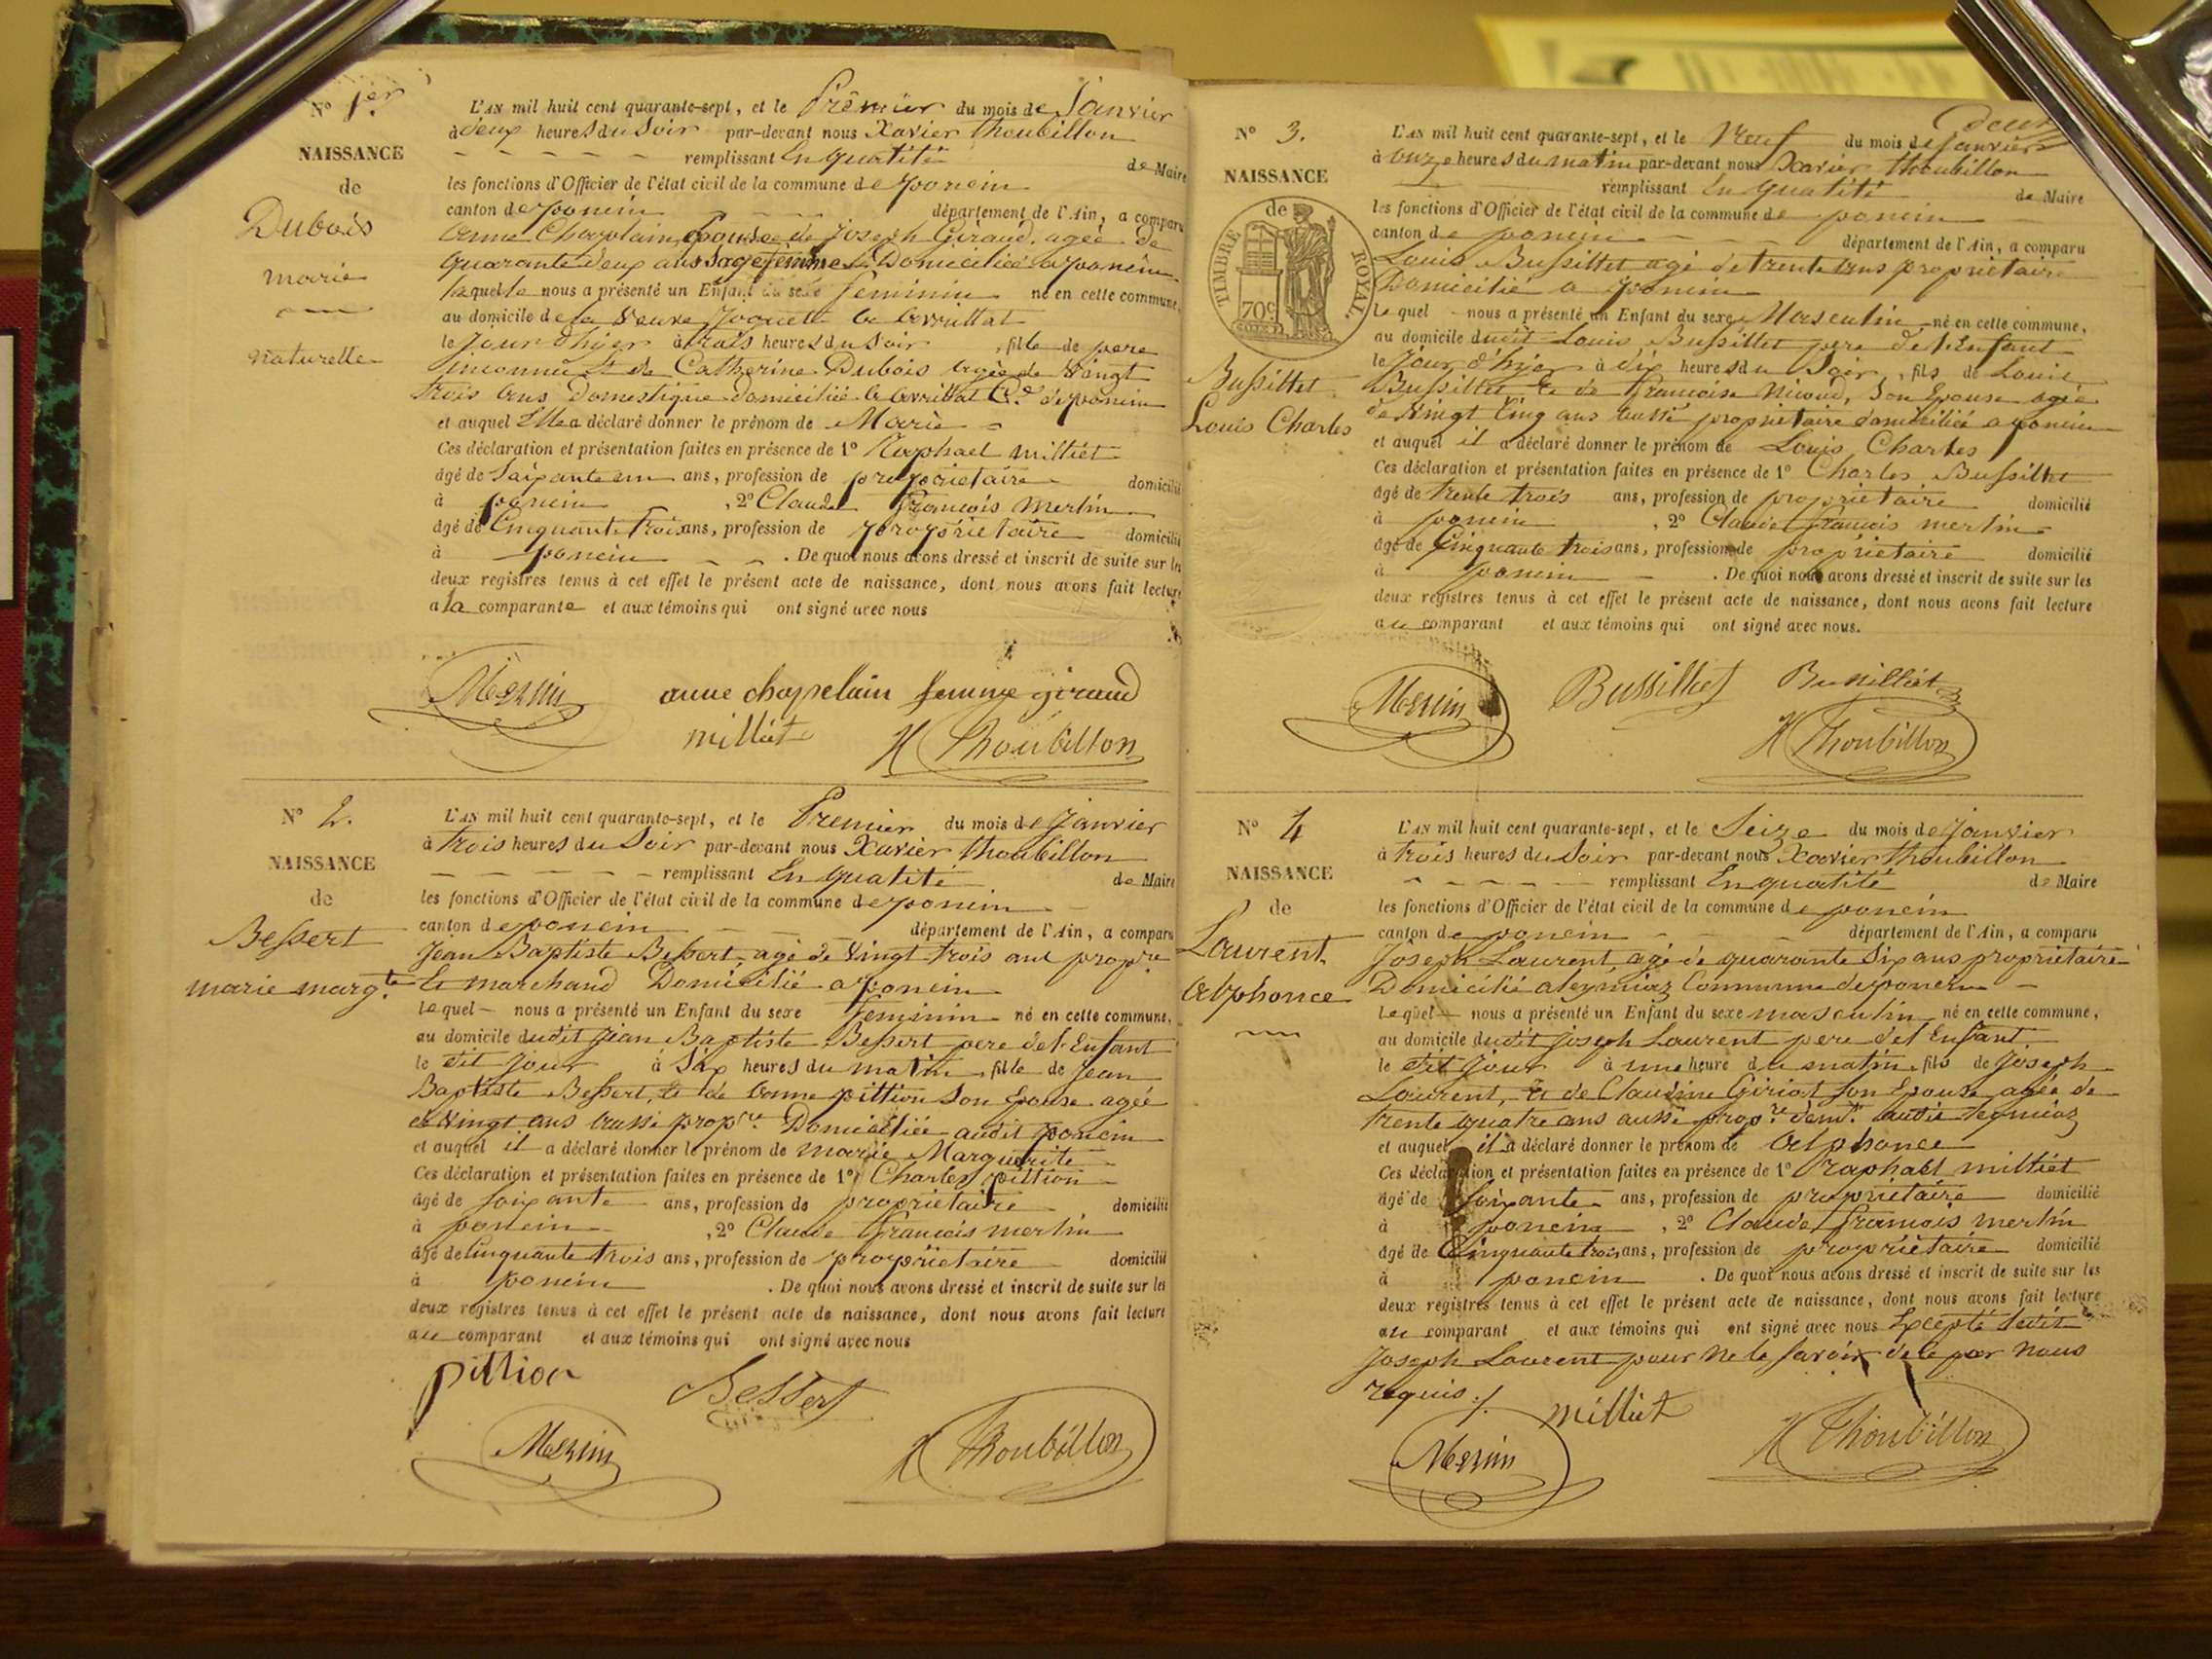 N° 1er
NAISSANCE
de
Dubois
marie
naturelle
L'AN mil huit cent quarante-sept, et le Premier du mois de Janvier
à deux heures du Soir par-devant nous Xavier Thoubillon
remplissant En qualité de Maire
les fonctions d'Officier de l'état civil de la commune de poncin
canton de poncin département de l'Ain, a comparu
Anne Chaplain Epouse de Joseph Giraud, agée de
quarante deux ans Sage femme Domiciliée a poncin
laquelle nous a présenté un Enfant du sexe feminin né en cette commune,
au domicile de la Veuve
le Jour d'hier à trois heures du Soir, fille de pere
inconnu Et de Catherine Dubois agée de Vingt
trois ans Domestique domiciliée Cne de poncin
et auquel Elle a déclaré donner le prénom de Marie
Ces déclaration et présentation faites en présence de 1° Raphael milliet
âgé de Soixante un ans, profession de proprietaire domicilié
à poncin, 2° Claude François Merlin
âgé de Cinquante trois ans, profession de proprietaire domicilié
à poncin. De quoi nous avons dressé et inscrit de suite sur les
deux registres tenus à cet effet le présent acte de naissance, dont nous avons fait lecture
a la comparante et aux témoins qui ont signé avec nous
Merlin anne chapelain femme giraud
milliet X Thoubillon
N° 2.
NAISSANCE
de
Bessert
marie margte
L'AN mil huit cent quarante-sept, et le Premier du mois de Janvier
à trois heures du Soir par-devant nous Xavier Thoubillon
remplissant En qualité de Maire
les fonctions d'Officier de l'état civil de la commune de poncin
canton de poncin département de l'Ain, a comparu
Jean Baptiste Bessert agé de Vingt trois ans propre
Et marchand Domicilié a poncin
Lequel nous a présenté un Enfant du sexe feminin né en cette commune,
au domicile dudit Jean Baptiste Bessert pere de l'Enfant
le dit jour à Six heures du matin, fille de Jean
Baptiste Bessert, Et de Anne pittion Son Epouse agée
de Vingt ans Aussi propre Domiciliée audit poncin
et auquel il a déclaré donner le prénom de Marie Marguerite
Ces déclaration et présentation faites en présence de 1° Charles pittion
âgé de Soixante ans, profession de proprietaire domicilié
à poncin, 2° Claude François merlin
âgé de Cinquante trois ans, profession de proprietaire domicilié
à poncin. De quoi nous avons dressé et inscrit de suite sur les
deux registres tenus à cet effet le présent acte de naissance, dont nous avons fait lecture
au comparant et aux témoins qui ont signé avec nous
pittion Bessert
Merlin X Thoubillon
deux
N° 3.
NAISSANCE
de
TIMBRE ROYAL
70c
Bussillet
Louis Charles
L'AN mil huit cent quarante-sept, et le Neuf du mois de Janvier
à onze heures du matin par-devant nous Xavier Thoubillon
remplissant En qualité de Maire
les fonctions d'Officier de l'état civil de la commune de poncin
canton de poncin département de l'Ain, a comparu
Louis Bussillet agé de trente ans proprietaire
Domicilié a poncin
Lequel nous a présenté un Enfant du sexe Masculin né en cette commune,
au domicile dudit Louis Bussillet pere de l'Enfant
le Jour d'hier à dix heures du Soir, fils de Louis
Bussillet Et de Françoise Nicoud, Son Epouse agée
de Vingt Cinq ans Aussi proprietaire domiciliée a poncin
et auquel il a déclaré donner le prénom de Louis Charles
Ces déclaration et présentation faites en présence de 1° Charles Bussillet
âgé de trente trois ans, profession de proprietaire domicilié
à poncin, 2° Claude François merlin
âgé de Cinquante trois ans, profession de proprietaire domicilié
à poncin. De quoi nous avons dressé et inscrit de suite sur les
deux registres tenus à cet effet le présent acte de naissance, dont nous avons fait lecture
au comparant et aux témoins qui ont signé avec nous.
Merlin Bussillet Bussilliet
X Thoubillon
N° 4
NAISSANCE
de
Laurent
Alphonce
L'AN mil huit cent quarante-sept, et le Seize du mois de Janvier
à trois heures du Soir par-devant nous Xavier Thoubillon
remplissant En qualité de Maire
les fonctions d'Officier de l'état civil de la commune de poncin
canton de poncin département de l'Ain, a comparu
Joseph Laurent, agé de quarante Six ans proprietaire
Domicilié a leymiaz Commune de poncin
Lequel nous a présenté un Enfant du sexe masculin né en cette commune,
au domicile dudit Joseph Laurent pere de l'Enfant
le dit Jour à une heure du matin, fils de Joseph
Laurent, Et de Claudine Giriat Son Epouse agée de
trente quatre ans aussi propre domte audit leymiaz
et auquel il a déclaré donner le prénom de Alphonce
Ces déclaration et présentation faites en présence de 1° Raphael milliet
âgé de Soixante ans, profession de proprietaire domicilié
à poncin, 2° Claude François merlin
âgé de Cinquante trois ans, profession de proprietaire domicilié
à poncin. De quoi nous avons dressé et inscrit de suite sur les
deux registres tenus à cet effet le présent acte de naissance, dont nous avons fait lecture
au comparant et aux témoins qui ont signé avec nous Excepté ledit
Joseph Laurent pour ne le Savoir de ce par nous
requis ./.
milliet
Merlin X Thoubillon